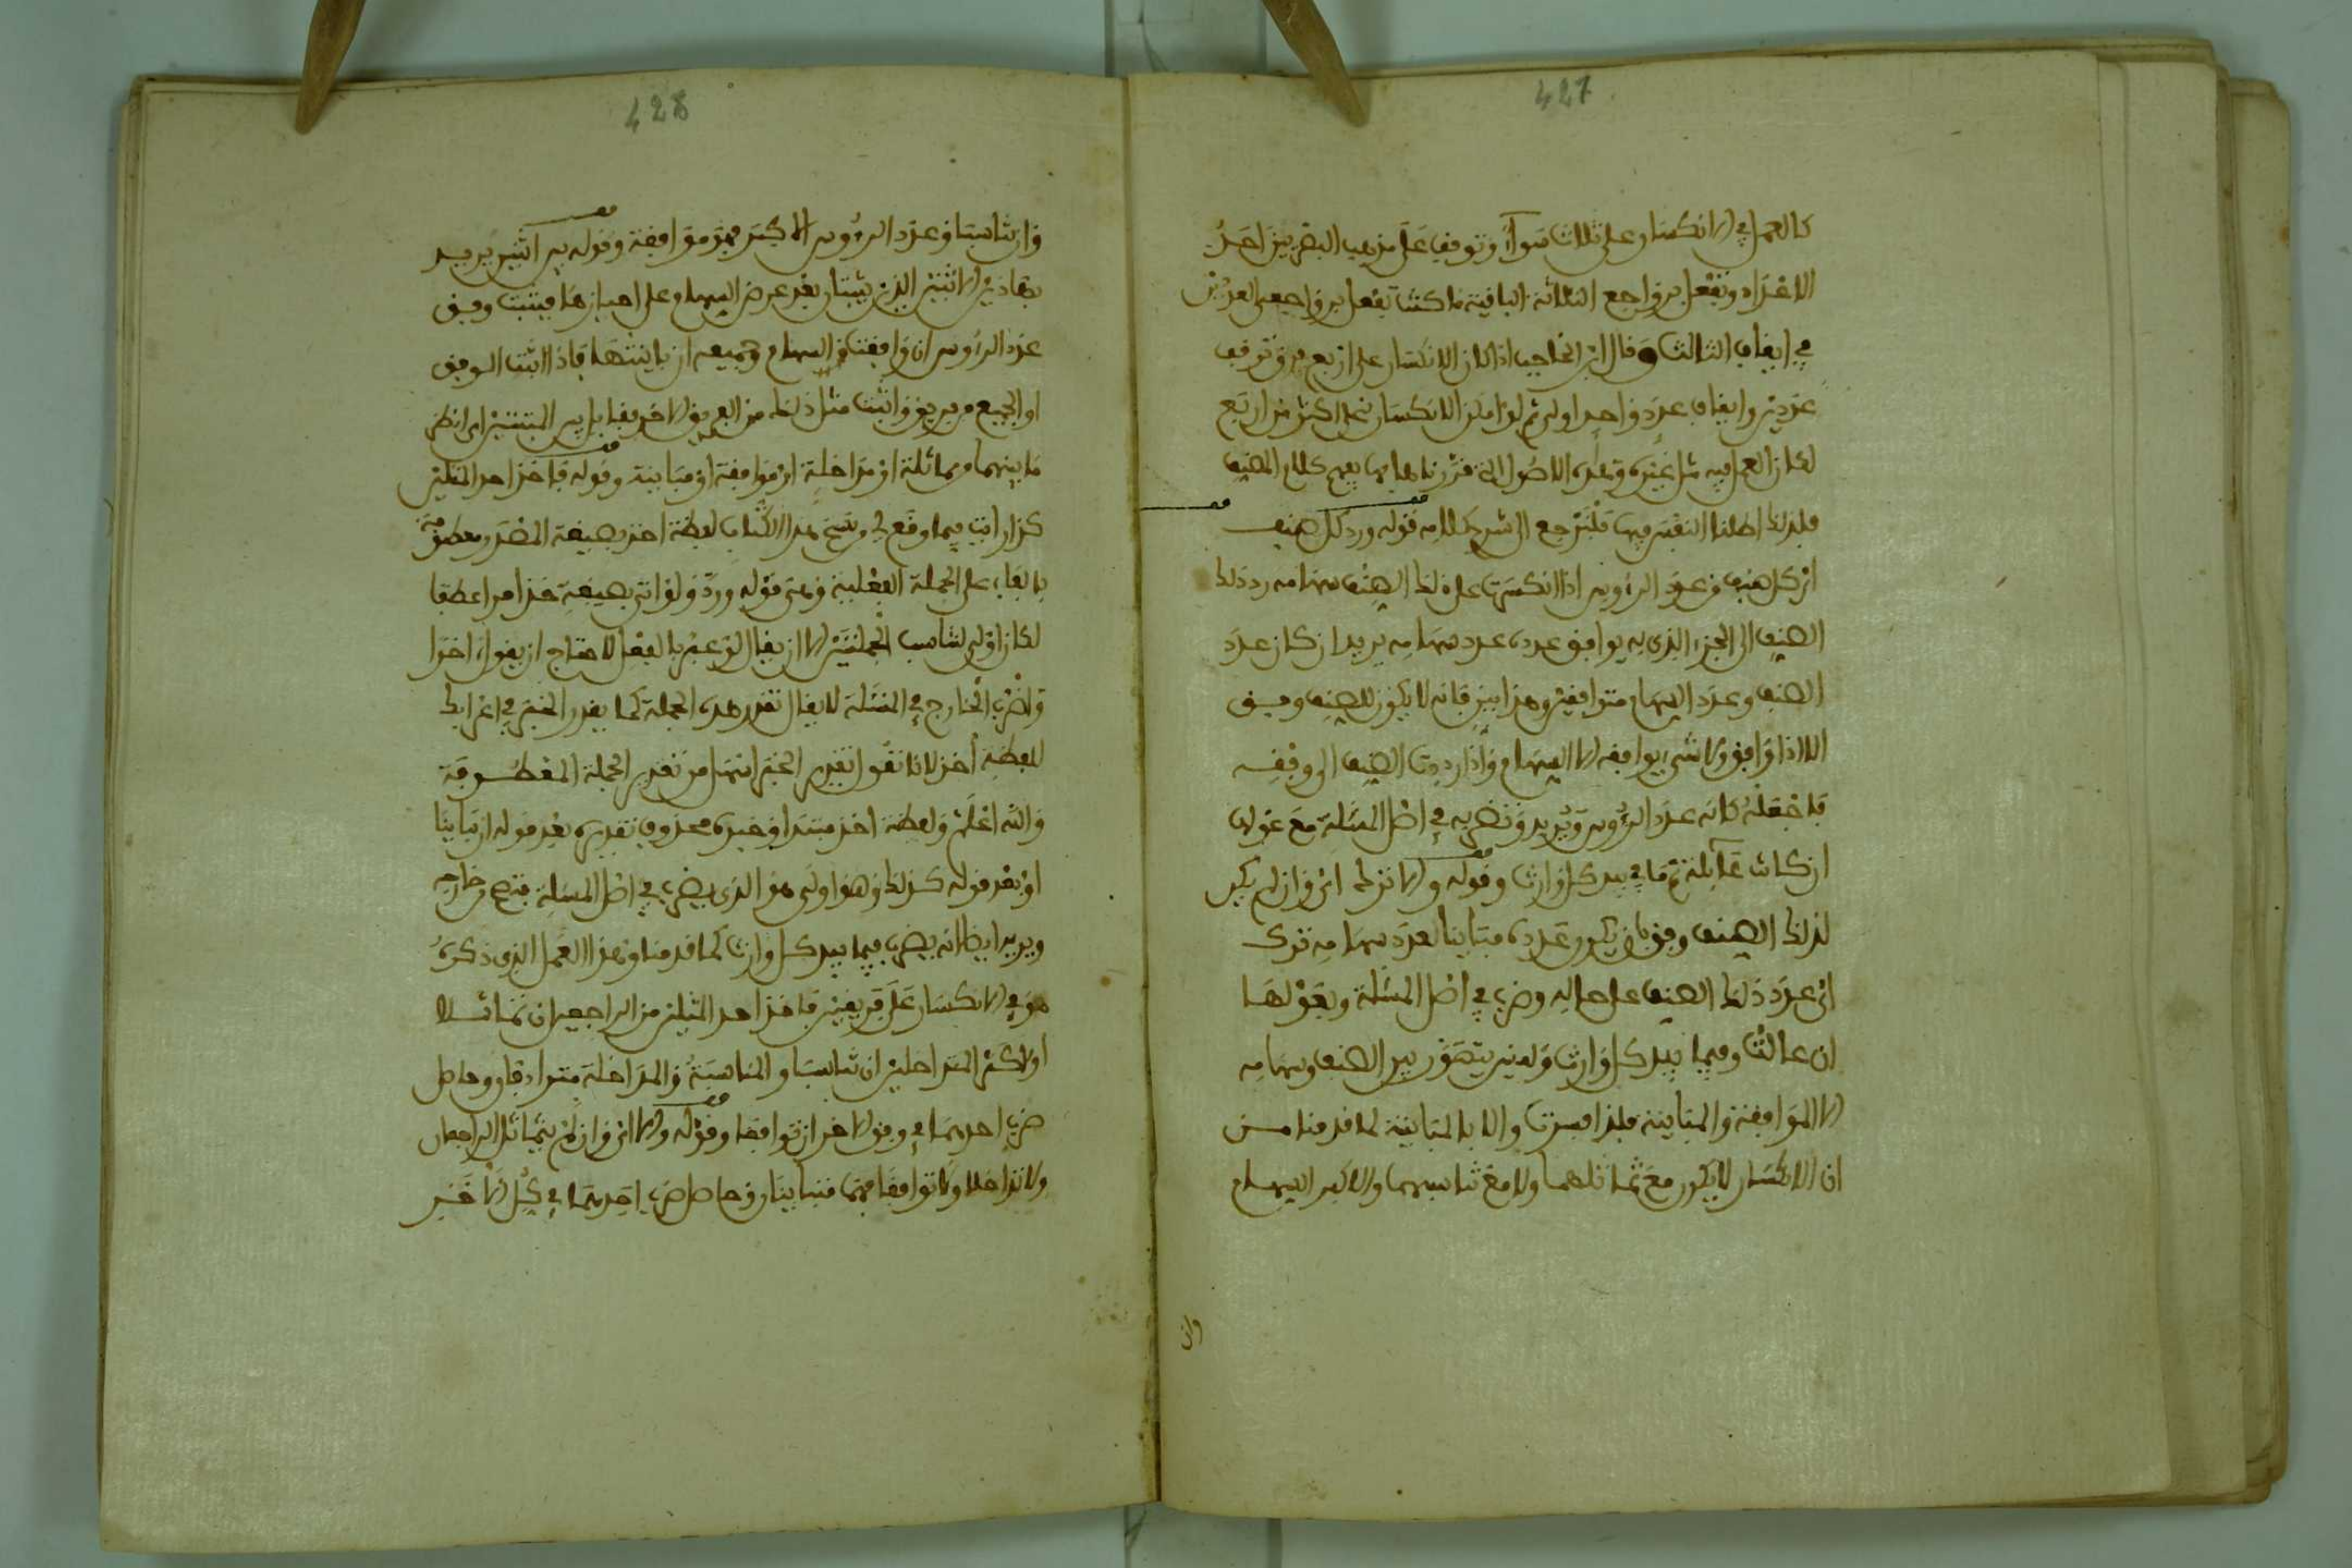 427
كالعمل في الانكسار على ثلاث سواء وتوقيف على مذهب البصريين احد
الاعداد وتفعل برواجع الثلاثة الباقية ما كنت تفعل برواجع العددين
في ايقاف الثالث وقال ابن الحاجب اذا كان الانكسار على اربع فرق توقف
عددين وايقاف عدد واحد اولى ثم لو امكن الانكسار على اكثر من اربع
لكان العمل فيه مثل غيره وهذه الاصول التي قررناها بها يفهم كلام المصنف
فلذلك اطلنا النفس فيها فلنرجع الى شرح كلامه قوله ورد كل صنف
اي كل صنف من عدد الرؤوس اذا انكسرت على ذلك الصنف سهامه رد ذلك
الصنف الى الجزء الذي به يوافق عدده عدد سهامه يريد ان كان عدد
الصنف وعدد السهام متوافقين وهذا بين فانه لا يكون للصنف وفق
الا اذا وافق ولا شيء يوافقه الا السهام واذا رددت الصنف الى وفقه
فاجعله كانه عدد الرؤوس ويريد وتضربه في اصل المسألة مع عولها
ان كانت عائلة ثم ما بيد كل وارث وقوله والا ترك اي وان لم يكن
لذلك الصنف وفق بان يكون عدده مباينا لعدد سهامه ترك
اي عدد ذلك الصنف على حاله وضرب في اصل المسألة وبعولها
ان عالت وفيما بيد كل وارث ولم يتصور بين الصنف وسهامه
الا الموافقة والمباينة فلذا فسرت والا بالمباينة لما قدمنا من
ان الانكسار لا يكون مع تماثلهما ولا مع تناسبهما والاكبر السهام
وان
428
وان تناسبا وعدد الرؤوس الاكبر فهو موافقة وقوله بين اثنين يريد
بهاذين الاثنين الذين يثبتان بعد عرض السهام على احيازها فيثبت وفق
عدد الرؤوس ان وافقت السهام وجميعه ان باينتها فاذا اثبت الوفق
او الجميع من فريق واثبت مثل ذلك من الفريق الاخر يقابل بين المثبتين اي انظر
ما بينهما من مماثلة او مداخلة او موافقة او مباينة وقوله فاخذ احد المثلين
كذا رايت فيما وقع لي من نسخ هذا الكتاب لفظة اخذ بصيغة المصدر معطوفة
بالفاء على الجملة الفعلية وهي قوله ورد ولو اتى بصيغة خذ امرا عطفا
لكان اولى لتناسب الجملتين الا ان يقال لو عبر بالفعل لاحتاج ان يقول اخرا
واضرب الخارج في المسألة لا يقال تقدر هذه الجملة كما يقدر الخبر في اعرابك
للفظة اخذ لانا نقول تقدير الخبر اسهل من تقدير الجملة المعطوفة
والله اعلم ولفظة اخذ مبتدأ وخبره محذوف تقديره بعد قوله ان تباينا
او بعد قوله كذلك وهذا اولى هو الذي يضرب في اصل المسألة فتصح من خارجه
ويريد ايضا انه يضرب فيما بيد كل وارث كما قدمنا وهذا العمل الذي ذكره
هو في الانكسار على فريقين فاخذ احد المثلين من الراجعين ان تماثلا
او اكثر المتداخلين ان تناسبا والمناسبة والمداخلة مترادفان وحاصل
ضرب احدهما في وفق الاخر ان توافقا وقوله والا اي وان لم يتماثل الراجعان
ولا تداخلا ولا توافقا فهما متباينان وحاصل ضرب احدهما في كل الاخر